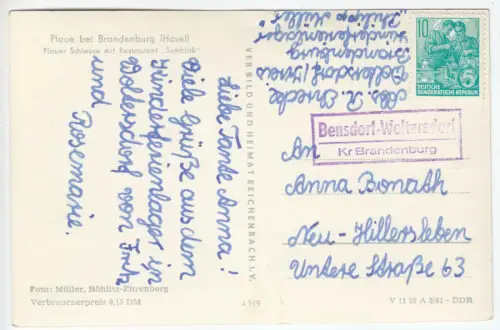 Plaue bei Brandenburg (Havel)
Plauer Schleuse mit Restaurant „Seeblick"
Liebe Tante Anna!
Viele Grüße aus dem
Kinderferienlager in
Woltersdorf von Fritz
und Rosemarie.
Foto: Müller, Böhlitz-Ehrenberg
Verbraucherpreis 0,10 DM
VEB BILD UND HEIMAT REICHENBACH I. V.
4319
Abs. R. Ehrecke
Woltersdorf/Kreis
Brandenburg
Kinderferienlager
„Philipp Müller"
10
DEUTSCHE
DEMOKRATISCHE REPUBLIK
Bensdorf-Woltersdorf
Kr Brandenburg
An
Anna Bonath
Neu-Hillersleben
Untere Straße 63
V 11 28 A 3/61 - DDR